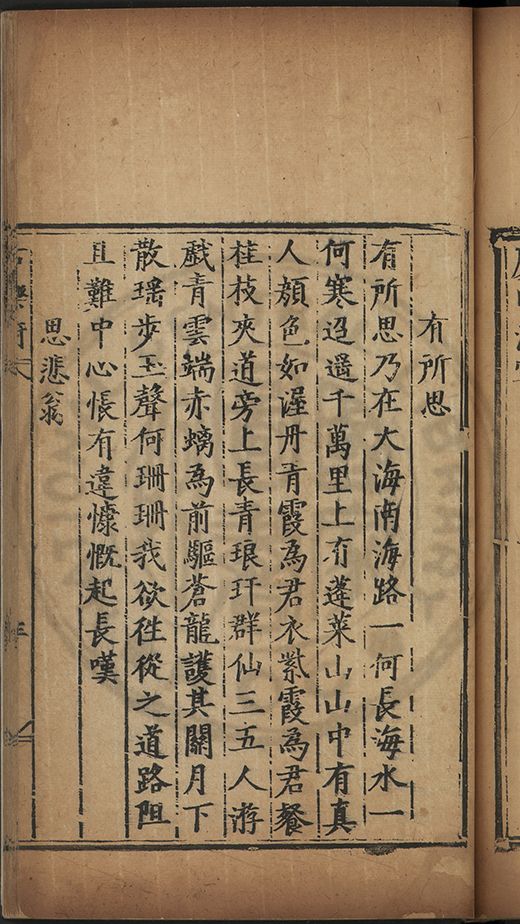 有所思
有所思乃在大海南海路一何長海水一
何寒迢遥千萬里上有蓬萊山山中有真
人顔色如渥丹青霞為君衣紫霞為君餐
桂枝夾道旁上長青琅玕群仙三五人游
戲青雲端赤螭為前驅蒼龍護其關月下
散瑶步玉聲何珊珊我欲徃從之道路阻
且難中心悵有違慷慨起長嘆
思悲翁